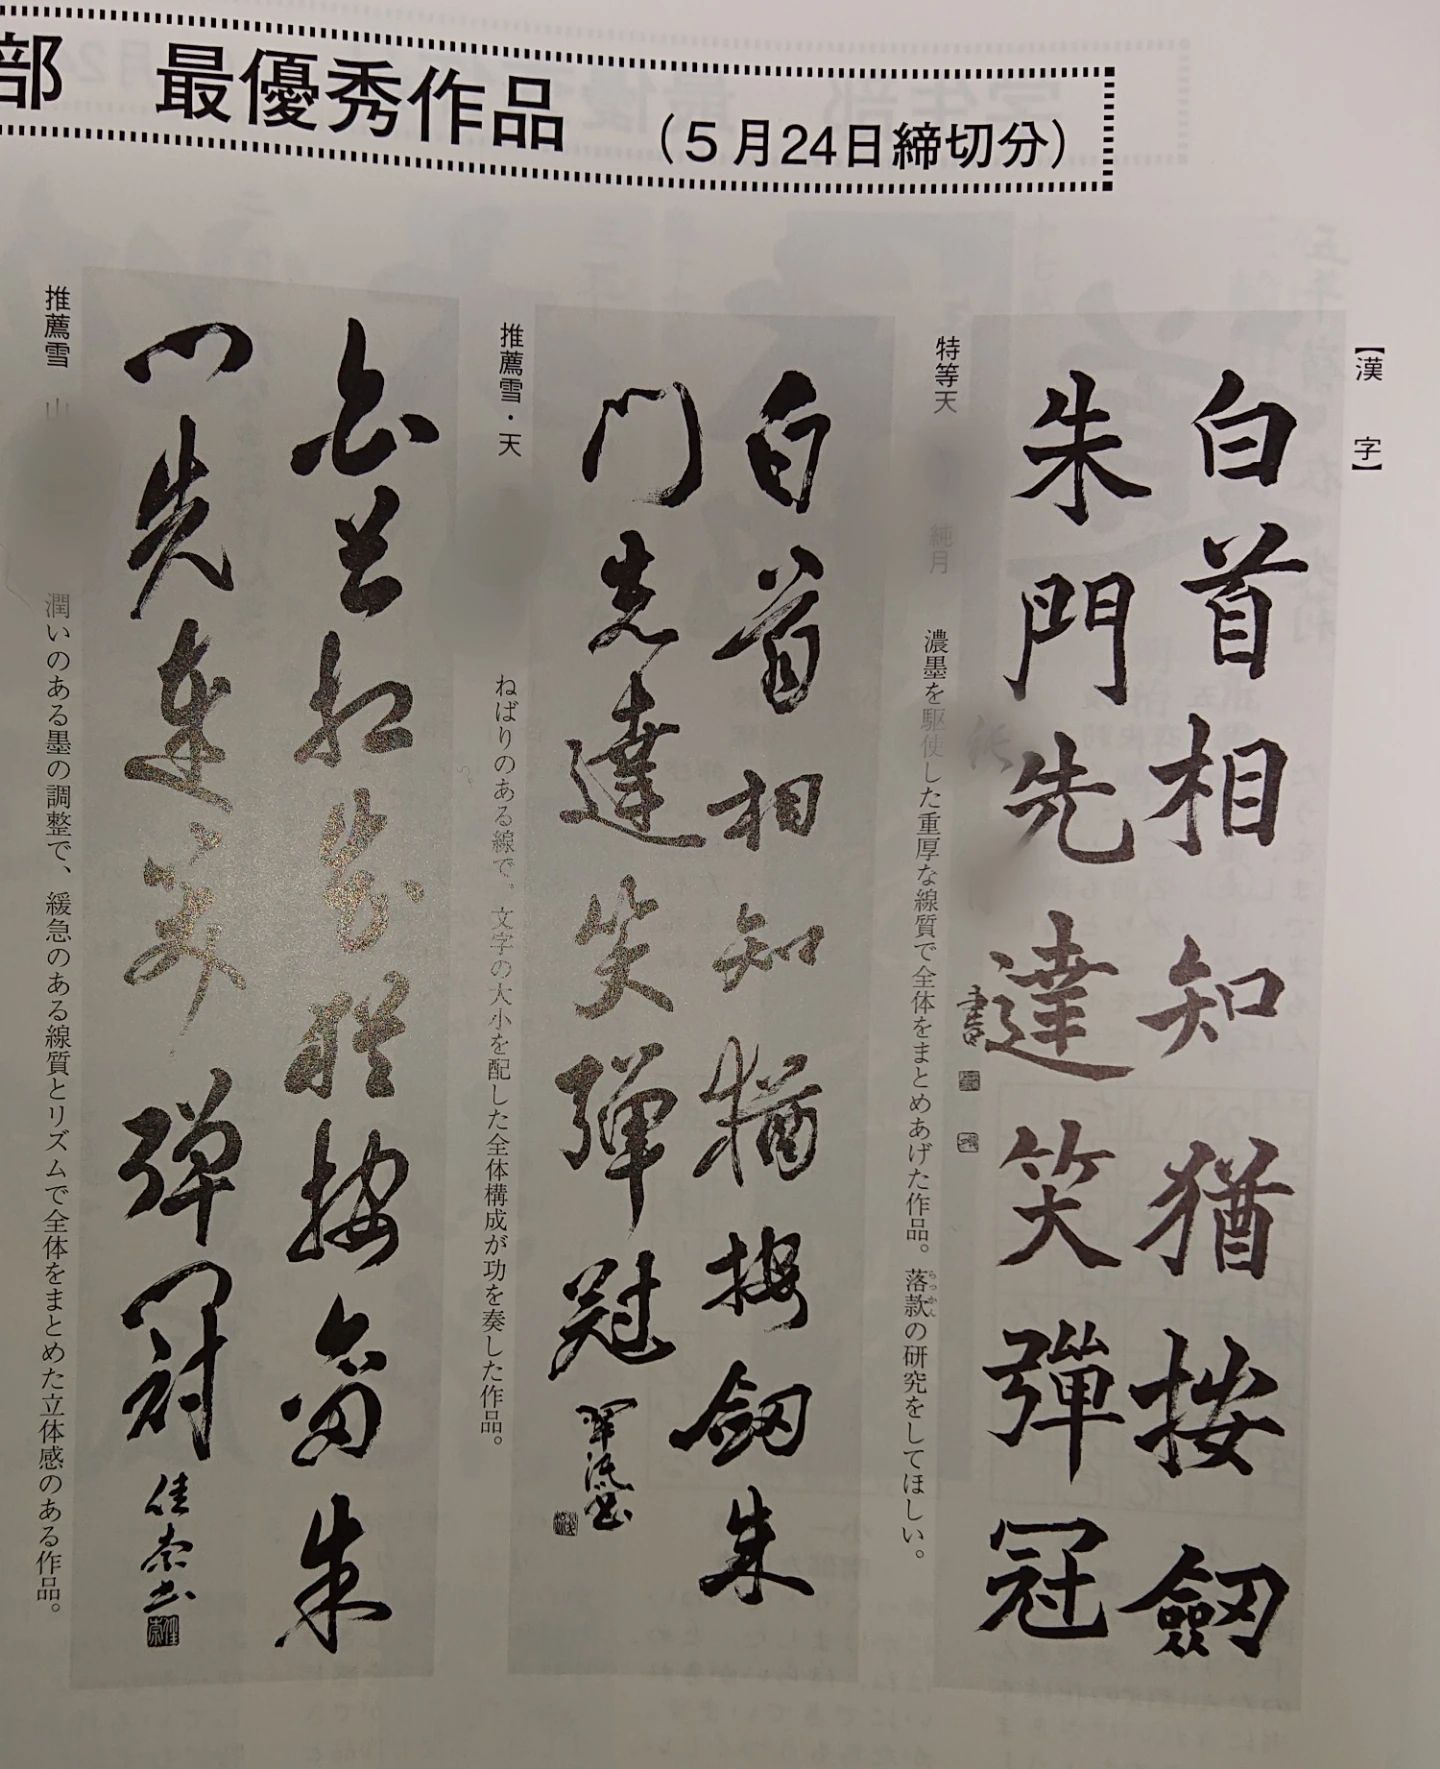 部　最優秀作品　（５月24日締切分）
【漢　字】
白首相知猶按劒
朱門先達笑彈冠
書
特等天
純月
濃墨を駆使した重厚な線質で全体をまとめあげた作品。落款の研究をしてほしい。
らっかん
白首相知猶按劒朱
門先達笑彈冠
推薦雪・天
ねばりのある線で、文字の大小を配した全体構成が功を奏した作品。
白首相知猶按劒朱
門先達笑彈冠
推薦雪
山
潤いのある墨の調整で、緩急のある線質とリズムで全体をまとめた立体感のある作品。